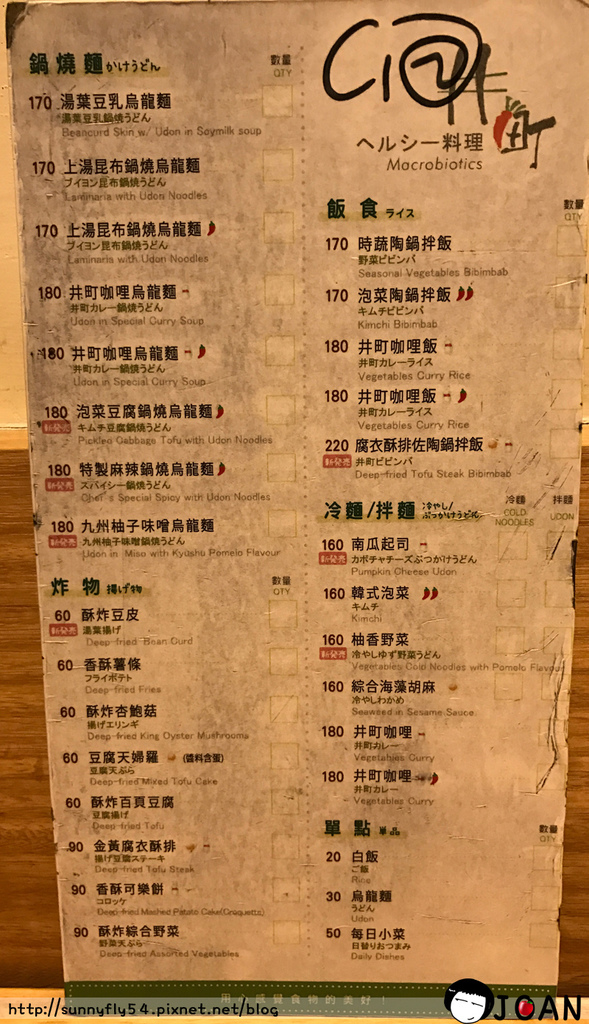 鍋燒麵 かけうどん 數量
QTY
170 湯葉豆乳烏龍麵
湯葉豆乳鍋燒うどん
Beancurd Skin w/ Udon in Soymilk soup
170 上湯昆布鍋燒烏龍麵
ブイヨン昆布鍋燒うどん
Laminaria with Udon Noodles
170 上湯昆布鍋燒烏龍麵
ブイヨン昆布鍋燒うどん
Laminaria with Udon Noodles
180 井町咖哩烏龍麵
井町カレー鍋燒うどん
Udon in Special Curry Soup
180 井町咖哩烏龍麵
井町カレー鍋燒うどん
Udon in Special Curry Soup
180 泡菜豆腐鍋燒烏龍麵
新発売 キムチ豆腐鍋燒うどん
Pickled Cabbage Tofu with Udon Noodles
180 特製麻辣鍋燒烏龍麵
新発売 スパイシー鍋燒うどん
Chef's Special Spicy with Udon Noodles
180 九州柚子味噌烏龍麵
新発売 九州柚子味噌鍋燒うどん
Udon in Miso with Kyushu Pomelo Flavour
炸物 揚げ物 數量
QTY
60 酥炸豆皮
新発売 湯葉揚げ
Deep-fried Bean Curd
60 香酥薯條
フライポテト
Deep-fried Fries
60 酥炸杏鮑菇
揚げエリンギ
Deep-fried King Oyster Mushrooms
60 豆腐天婦羅 (醬料含蛋)
豆腐天ぷら
Deep-fried Mixed Tofu Cake
60 酥炸百頁豆腐
豆腐揚げ
Deep-fried Tofu
90 金黃腐衣酥排
揚げ豆腐ステーキ
Deep-fried Tofu Steak
90 香酥可樂餅
コロッケ
Deep-fried Mached Patato Cake(Croquette)
90 酥炸綜合野菜
野菜天ぷら
Deep-fried Assorted Vegetables
井町
ヘルシー料理
Macrobiotics
飯食 ライス 數量
QTY
170 時蔬陶鍋拌飯
野菜ビビンバ
Seasonal Vegetables Bibimbab
170 泡菜陶鍋拌飯
キムチビビンバ
Kimchi Bibimbab
180 井町咖哩飯
井町カレーライス
Vegetables Curry Rice
180 井町咖哩飯
井町カレーライス
Vegetables Curry Rice
220 腐衣酥排佐陶鍋拌飯
新発売 井町ビビンバ
Deep-fried Tofu Steak Bibimbab
冷麵/拌麵 冷やし/ぶっかけうどん 冷麵 拌麵
COLD NOODLES UDON
160 南瓜起司
新発売 カボチャチーズぶつかけうどん
Pumpkin Cheese Udon
160 韓式泡菜
キムチ
Kimchi
160 柚香野菜
新発売 冷やしゆず野菜うどん
Vegetables Cold Noodles with Pomelo Flavour
160 綜合海藻胡麻
冷やしわかめ
Seaweed in Sesame Sauce
180 井町咖哩
井町カレー
Vegetables Curry
180 井町咖哩
井町カレー
Vegetables Curry
單點 單品 數量
QTY
20 白飯
ご飯
Rice
30 烏龍麵
うどん
Udon
50 每日小菜
日替りおつまみ
Daily Dishes
用心感覺食物的美好!
http://sunnyfly54.pixnet.net/blog
JOAN